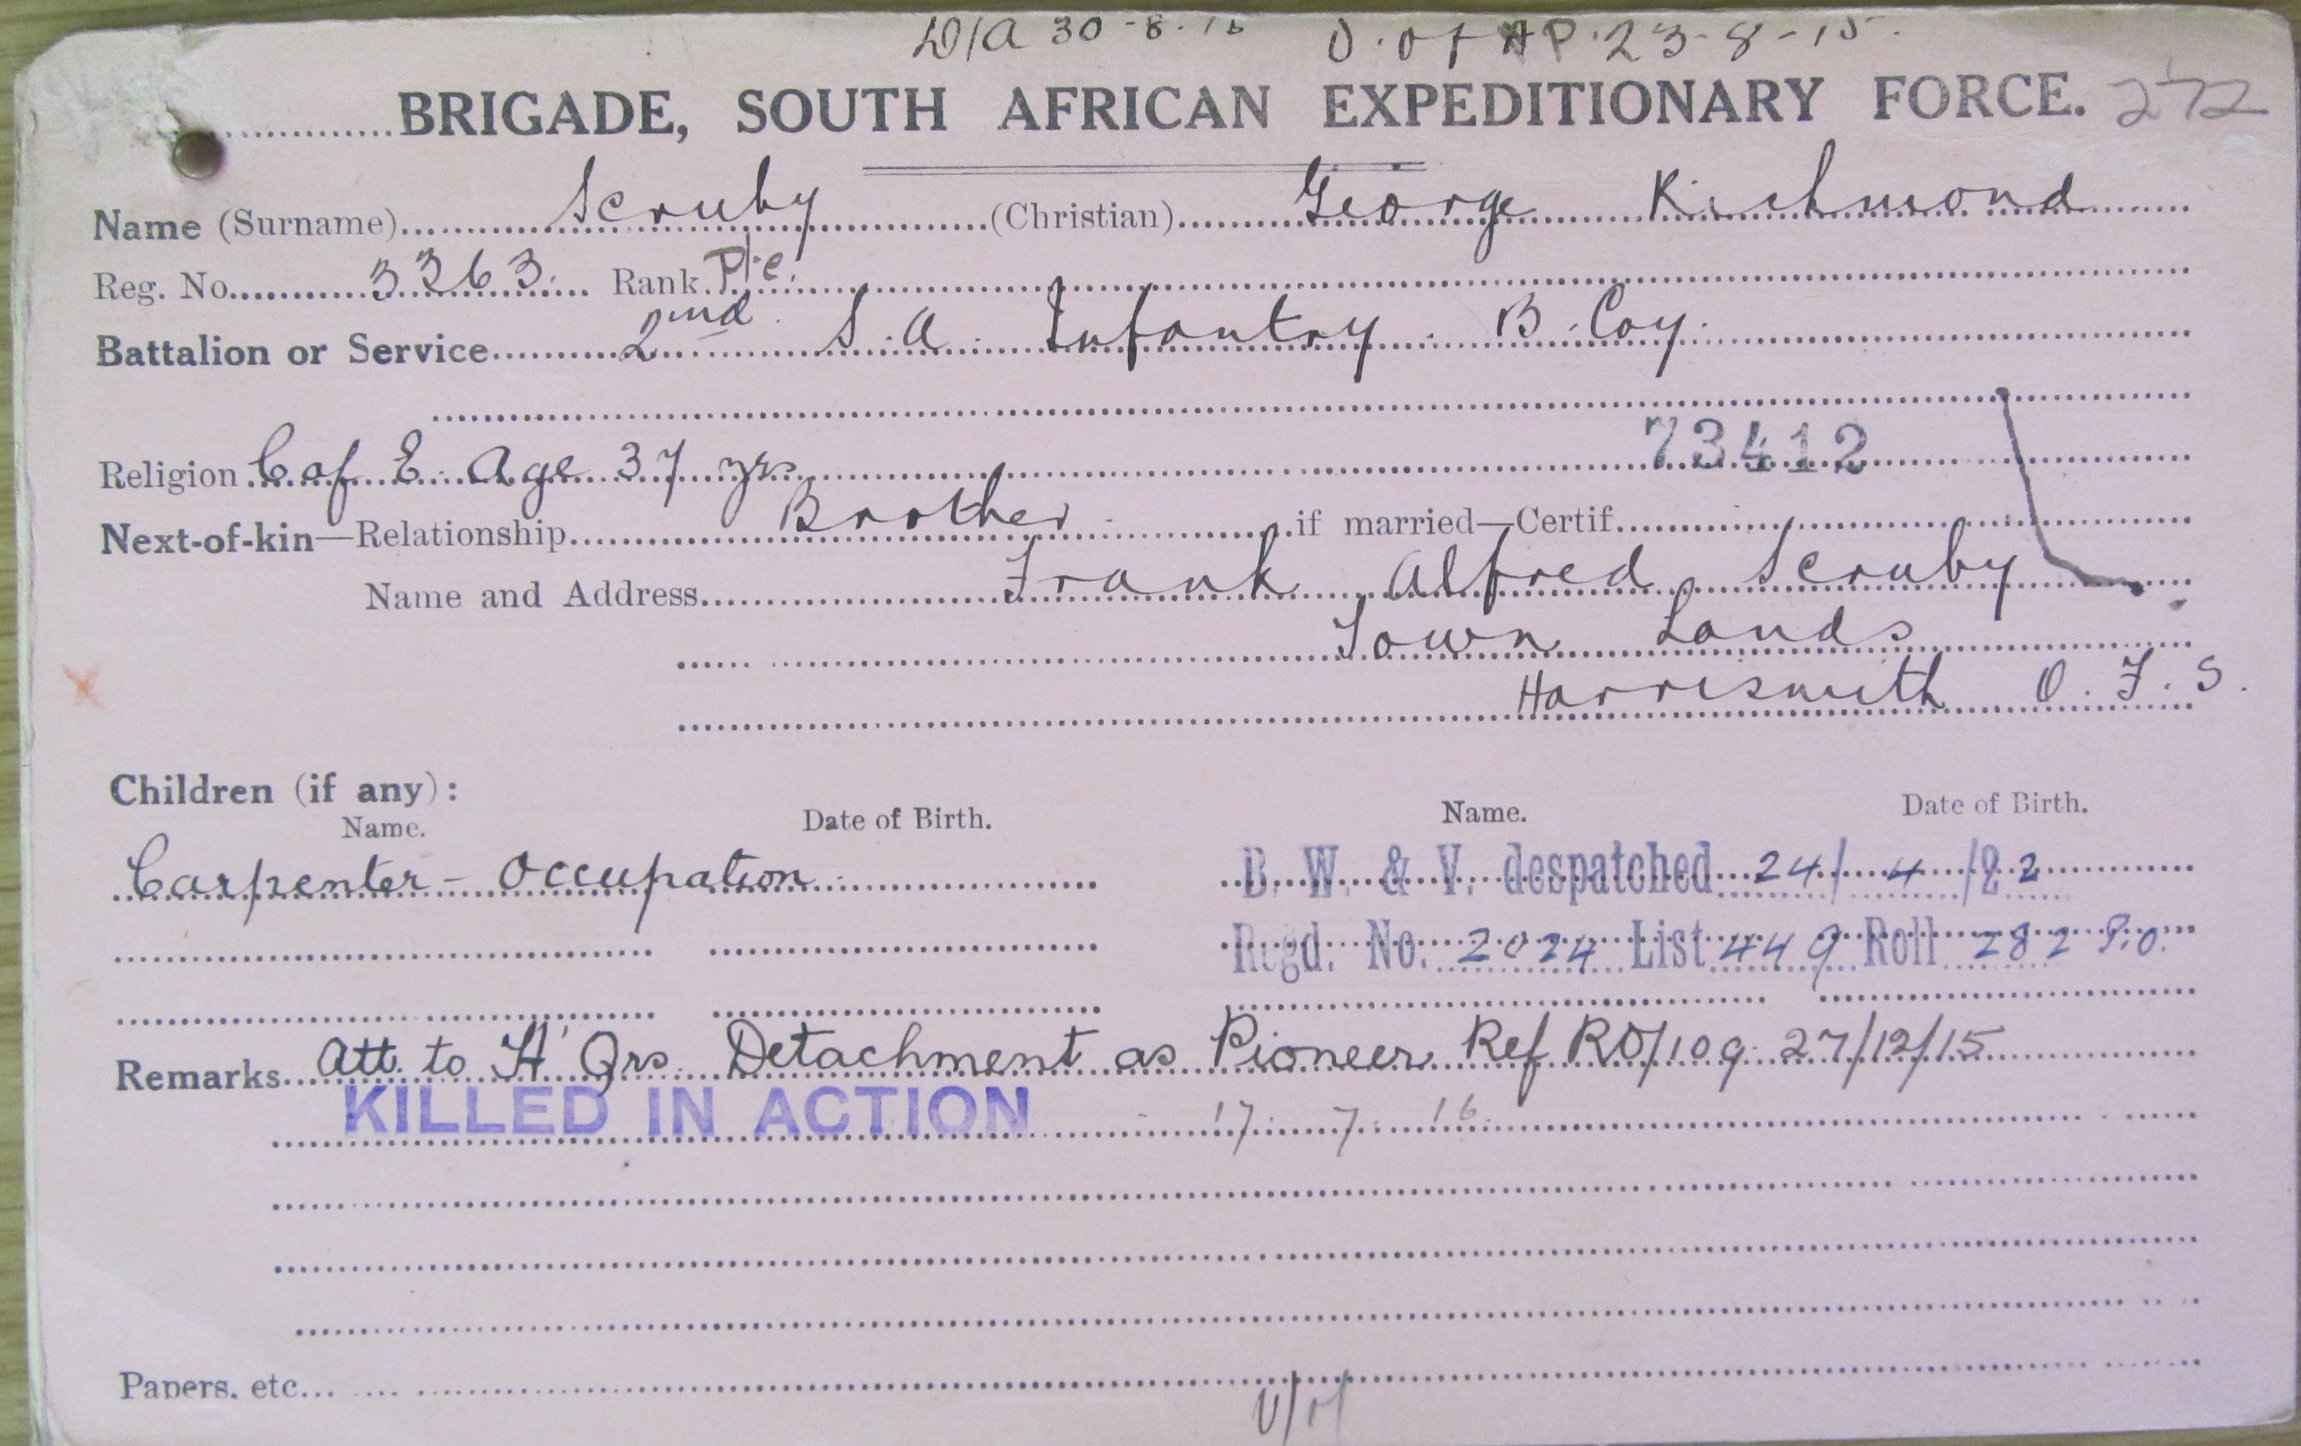 D/A 30-8-15 D. of AP. 23-8-15.
BRIGADE, SOUTH AFRICAN EXPEDITIONARY FORCE. 272
Name (Surname) Scruby (Christian) George Richmond
Reg. No. 3363. Rank Pte.
Battalion or Service 2nd S.A. Infantry. B. Coy.
73412
Religion C of E. Age 37 yrs
Next-of-kin—Relationship Brother. if married—Certif.
Name and Address Frank Alfred Scruby
Town Lands
Harrismith O.F.S.
Children (if any):
Name. Date of Birth. Name. Date of Birth.
Carpenter - Occupation. B. W. & V. despatched 24/4/22
Regd. No. 2024 List 449 Roll 282 P.O.
Remarks Att. to H' Qrs. Detachment as Pioneer Ref RO/109 27/12/15
KILLED IN ACTION 17. 7. 16.
Papers, etc.